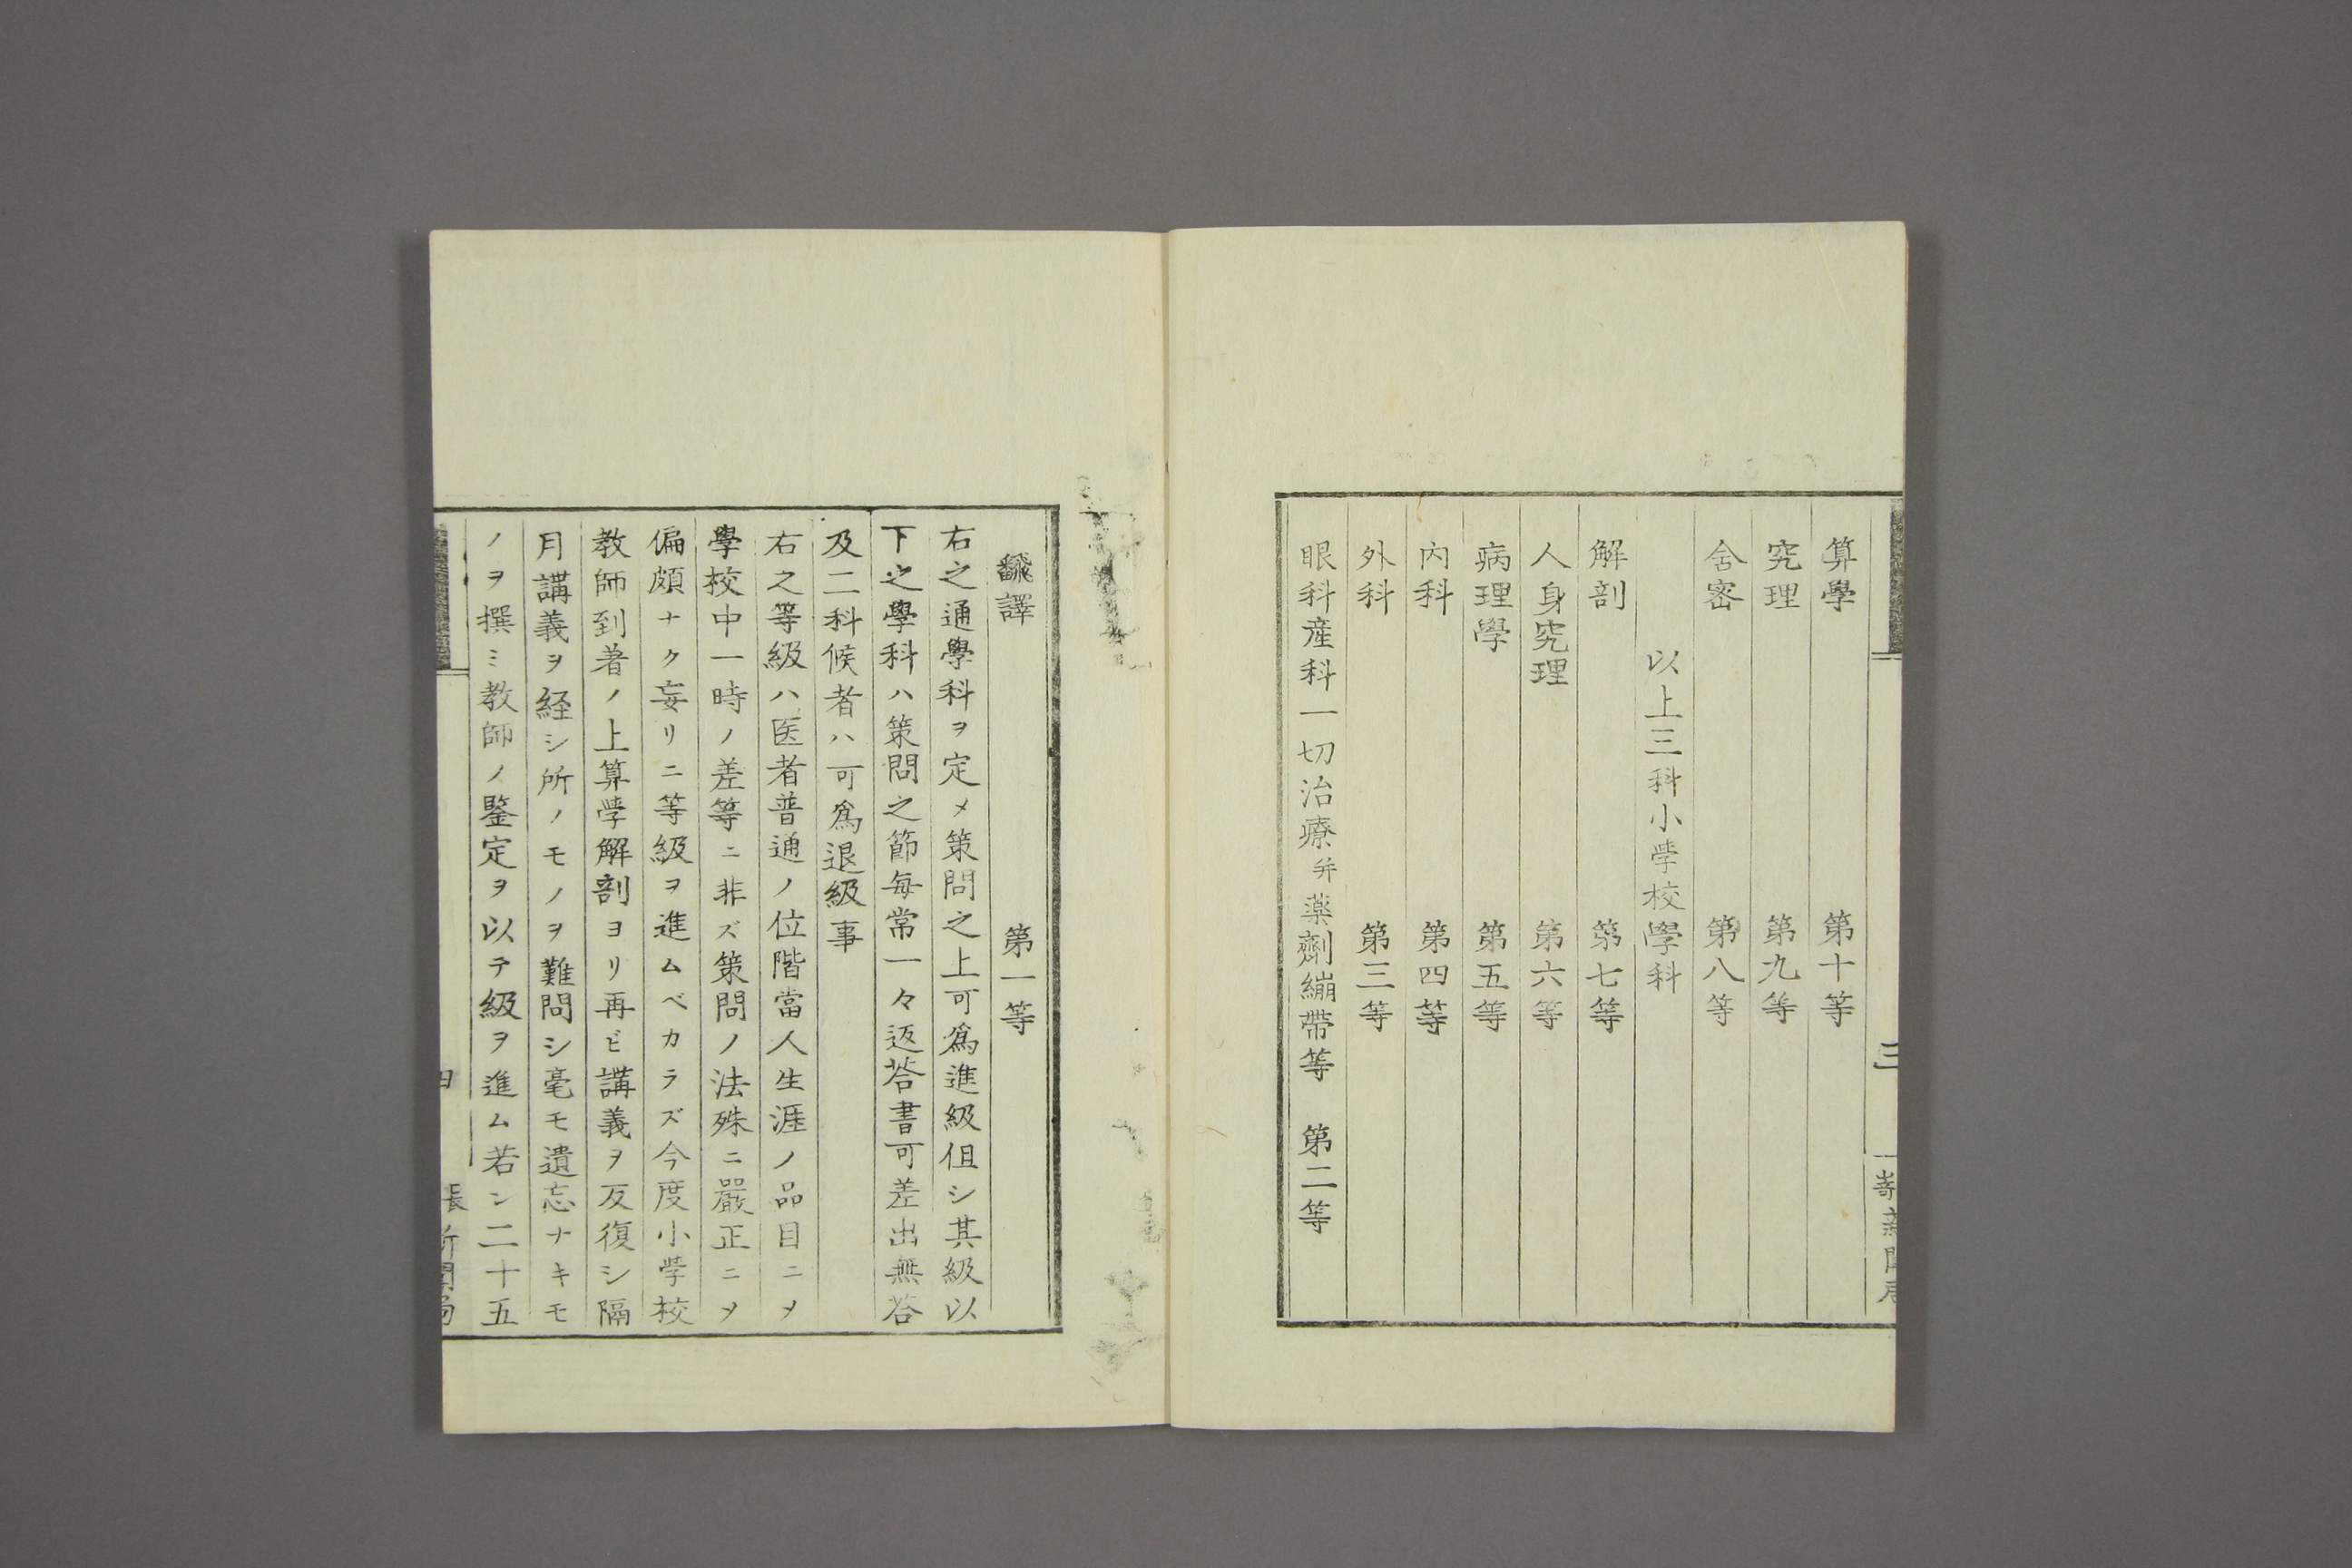 算學 第十等
究理 第九等
舍密 第八等
以上三科小学校學科
解剖 第七等
人身究理 第六等
病理學 第五等
内科 第四等
外科 第三等
眼科産科一切治療并薬劑繃帶等 第二等
三
飜譯 第一等
右之通學科ヲ定メ策問之上可爲進級但シ其級以
下之學科ハ策問之節毎常一々返荅書可差出無荅
及二科候者ハ可爲退級事
右之等級ハ医者普通ノ位階當人生涯ノ品目ニヿ
學校中一時ノ差等ニ非ズ策問ノ法殊ニ嚴正ニヿ
偏頗ナク妄リニ等級ヲ進ムベカラズ今度小学校
教師到著ノ上算学解剖ヨリ再ビ講義ヲ反復シ隔
月講義ヲ経シ所ノモノヲ難問シ毫モ遺忘ナキモ
ノヲ撰ミ教師ノ鑒定ヲ以テ級ヲ進ム若シ二十五